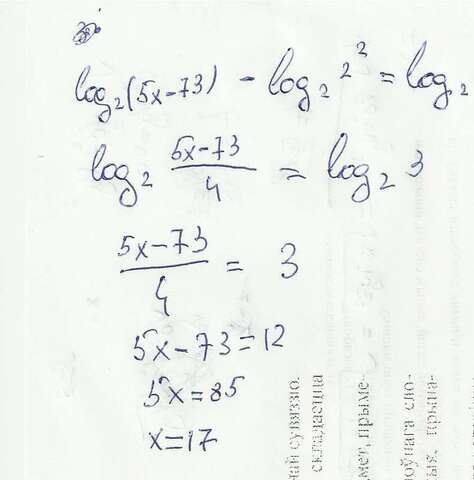 log₂(5x-73) - log₂ 2² = log₂
log₂ (5x-73)/4 = log₂ 3
(5x-73)/4 = 3
5x-73=12
5x=85
x=17
най сувяззю.
складаецца
мет, прыме-
оўнага сло-
ых, прына-